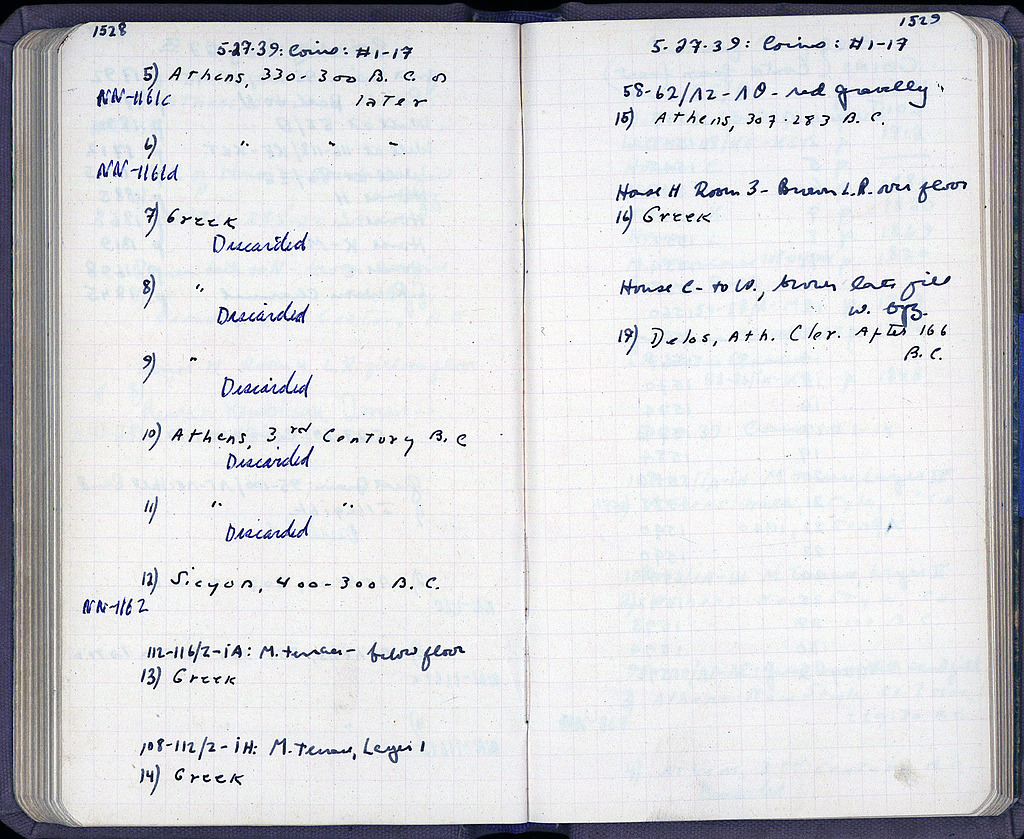 1528
5-27-39: Coins: #1-17
5) Athens, 330-300 B.C. or
NN-1161c later
6) " " "
NN-1161d
7) Greek
Discarded
8) "
Discarded
9) "
Discarded
10) Athens, 3rd Century B.C
Discarded
11) " "
Discarded
12) Sicyon, 400-300 B.C.
NN-1162
112-116/2-iA: M. terrace- below floor
13) Greek
108-112/2-iH: M. Terrace, Layer 1
14) Greek
1529
5-27-39: Coins: #1-17
58-62/12-18- red gravelly
15) Athens, 307-283 B.C.
House H Room 3- Brown L.R. over floor
16) Greek
House C- to W., brown late fill
w.
17) Delos, Ath. Cler. After 166
B.C.